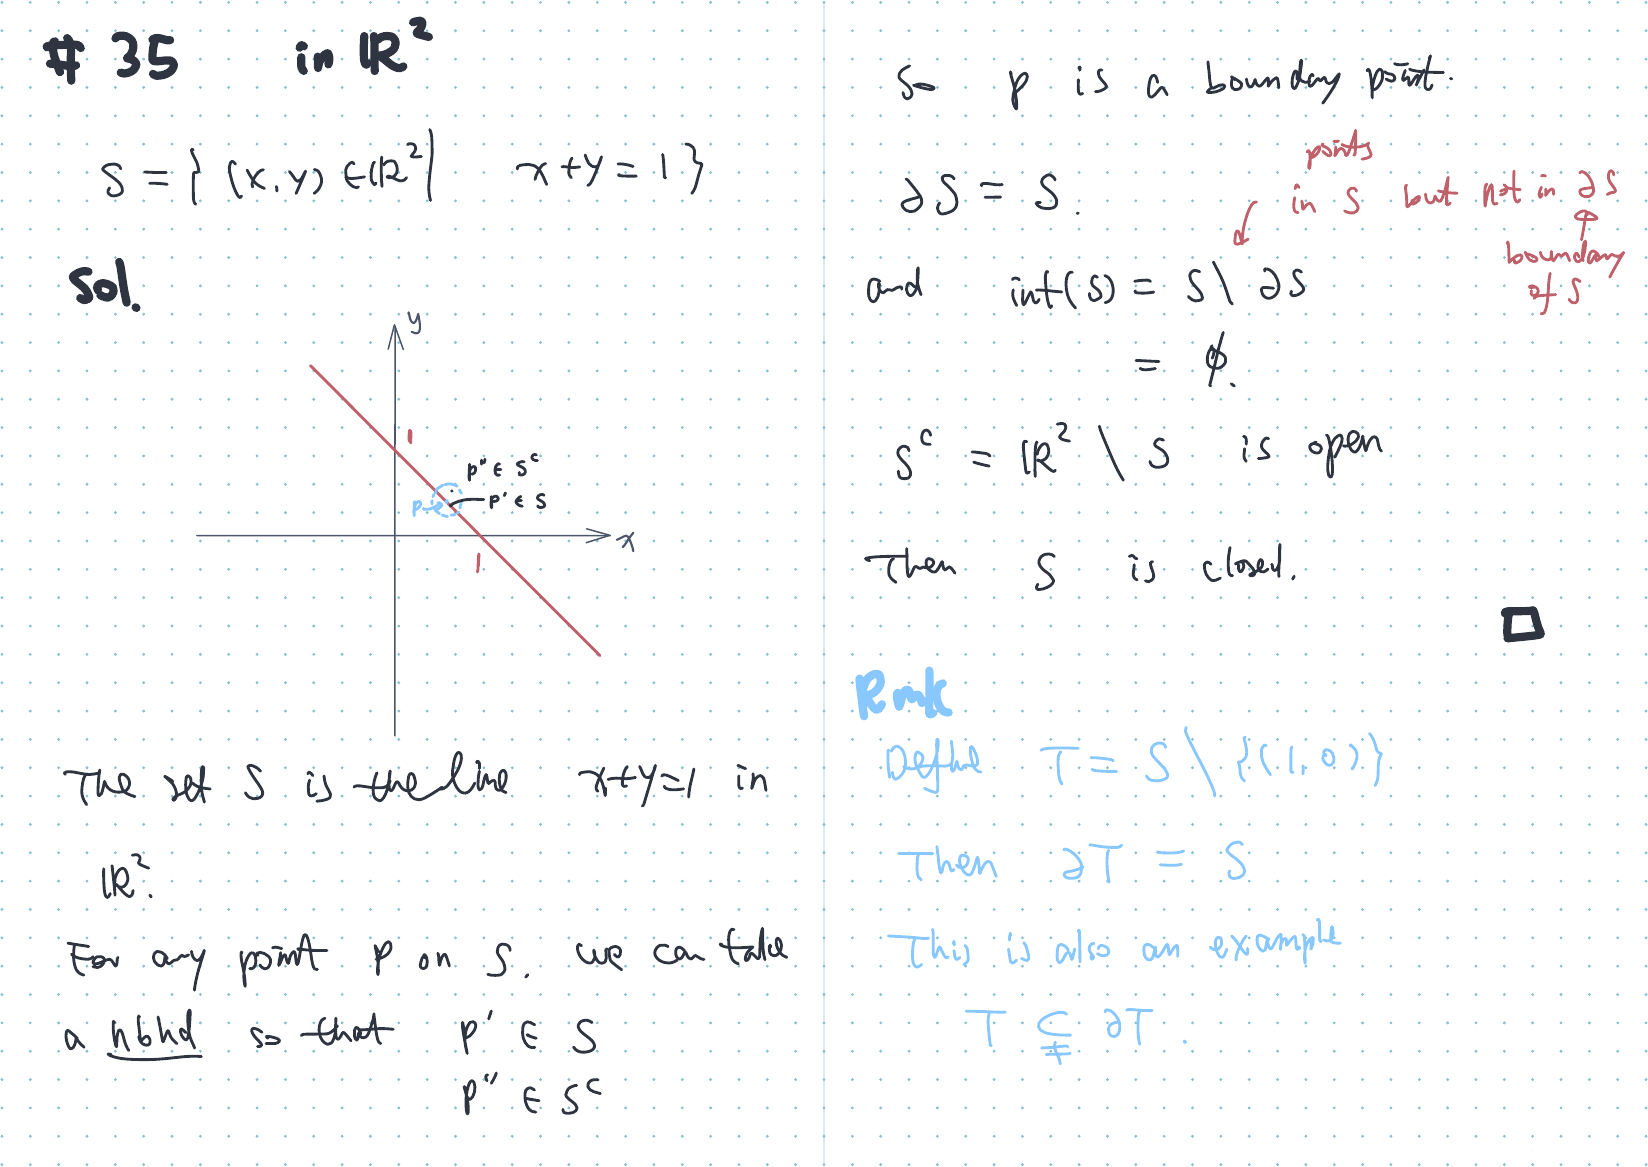 # 35 in ℝ²
S = { (x, y) ∈ ℝ² | x + y = 1 }
Sol.
y
1
p'' ∈ Sᶜ
p
p' ∈ S
x
1
The set S is the line x+y=1 in
ℝ².
For any point p on S. we can take
a nbhd so that p' ∈ S
p'' ∈ Sᶜ
So p is a bounday point.
∂S = S.
points
in S but not in ∂S
boundary
of S
and int(S) = S \ ∂S
= ∅.
Sᶜ = ℝ² \ S is open
Then S is closed.
□
Rmk
Define T = S \ {(1, 0)}
Then ∂T = S
This is also an example
T ⊊ ∂T.